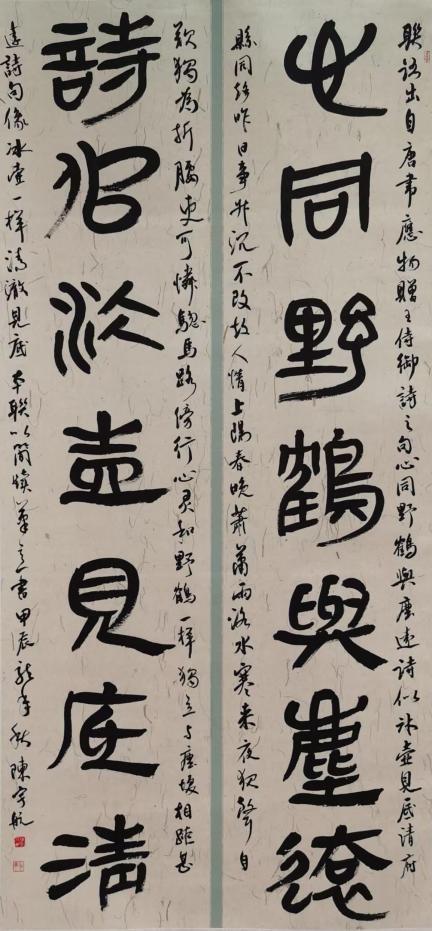 心同野鶴與塵遠
聯語出自唐韋應物贈王侍御詩之句心同野鶴與塵遠詩似冰壺見底清府
縣同趨昨日事升沉不改故人情上陽春晚蕭蕭雨洛水寒來夜聲自
歎獨為折腰吏可憐驄馬路傍行心灵如野鶴一樣獨立与塵壤相距甚
詩似冰壺見底清
遠詩句像冰壺一樣清澈見底本聯以簡牘筆意書甲辰龍年秋陳宇航